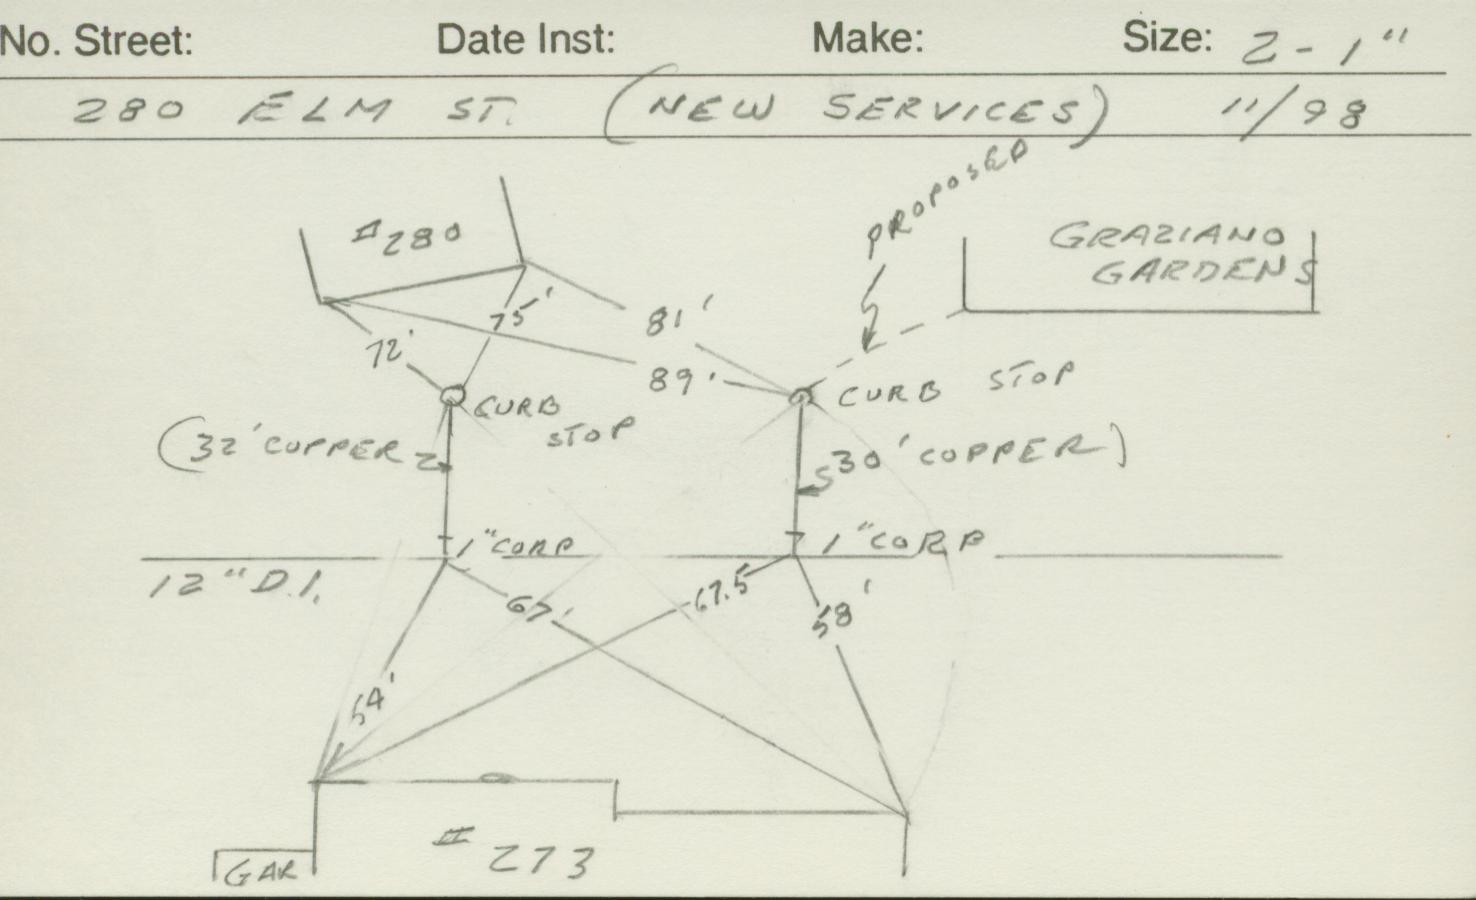 No. Street: Date Inst: Make: Size: 2-1"
280 ELM ST. (NEW SERVICES) 11/98
PROPOSED
#280
GRAZIANO
GARDENS
75'
81'
72'
89'
CURB STOP
CURB STOP
(32' COPPER
30' COPPER)
1" CORP
1" CORP
12" D.I.
67'
67.5
58'
54'
#273
GAR